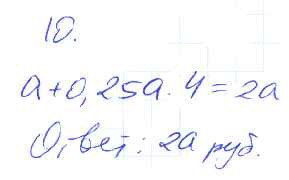 10.
a+0,25a·4=2a
Ответ: 2a руб.